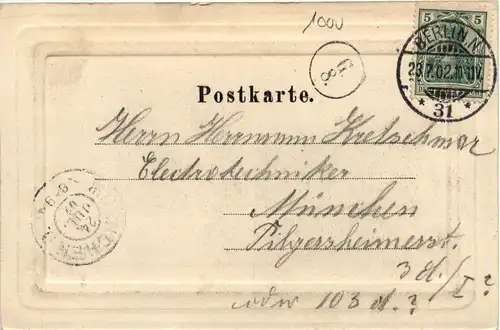 1000
5 5
BERLIN N.
23.7.02.10-11V.
* 31 *
Postkarte.
Herrn Herrmann Kretschmar
Electrotechniker
München
Pilgersheimerst.
3 d./I ?
oder 103 d. ?
24 JUL 02